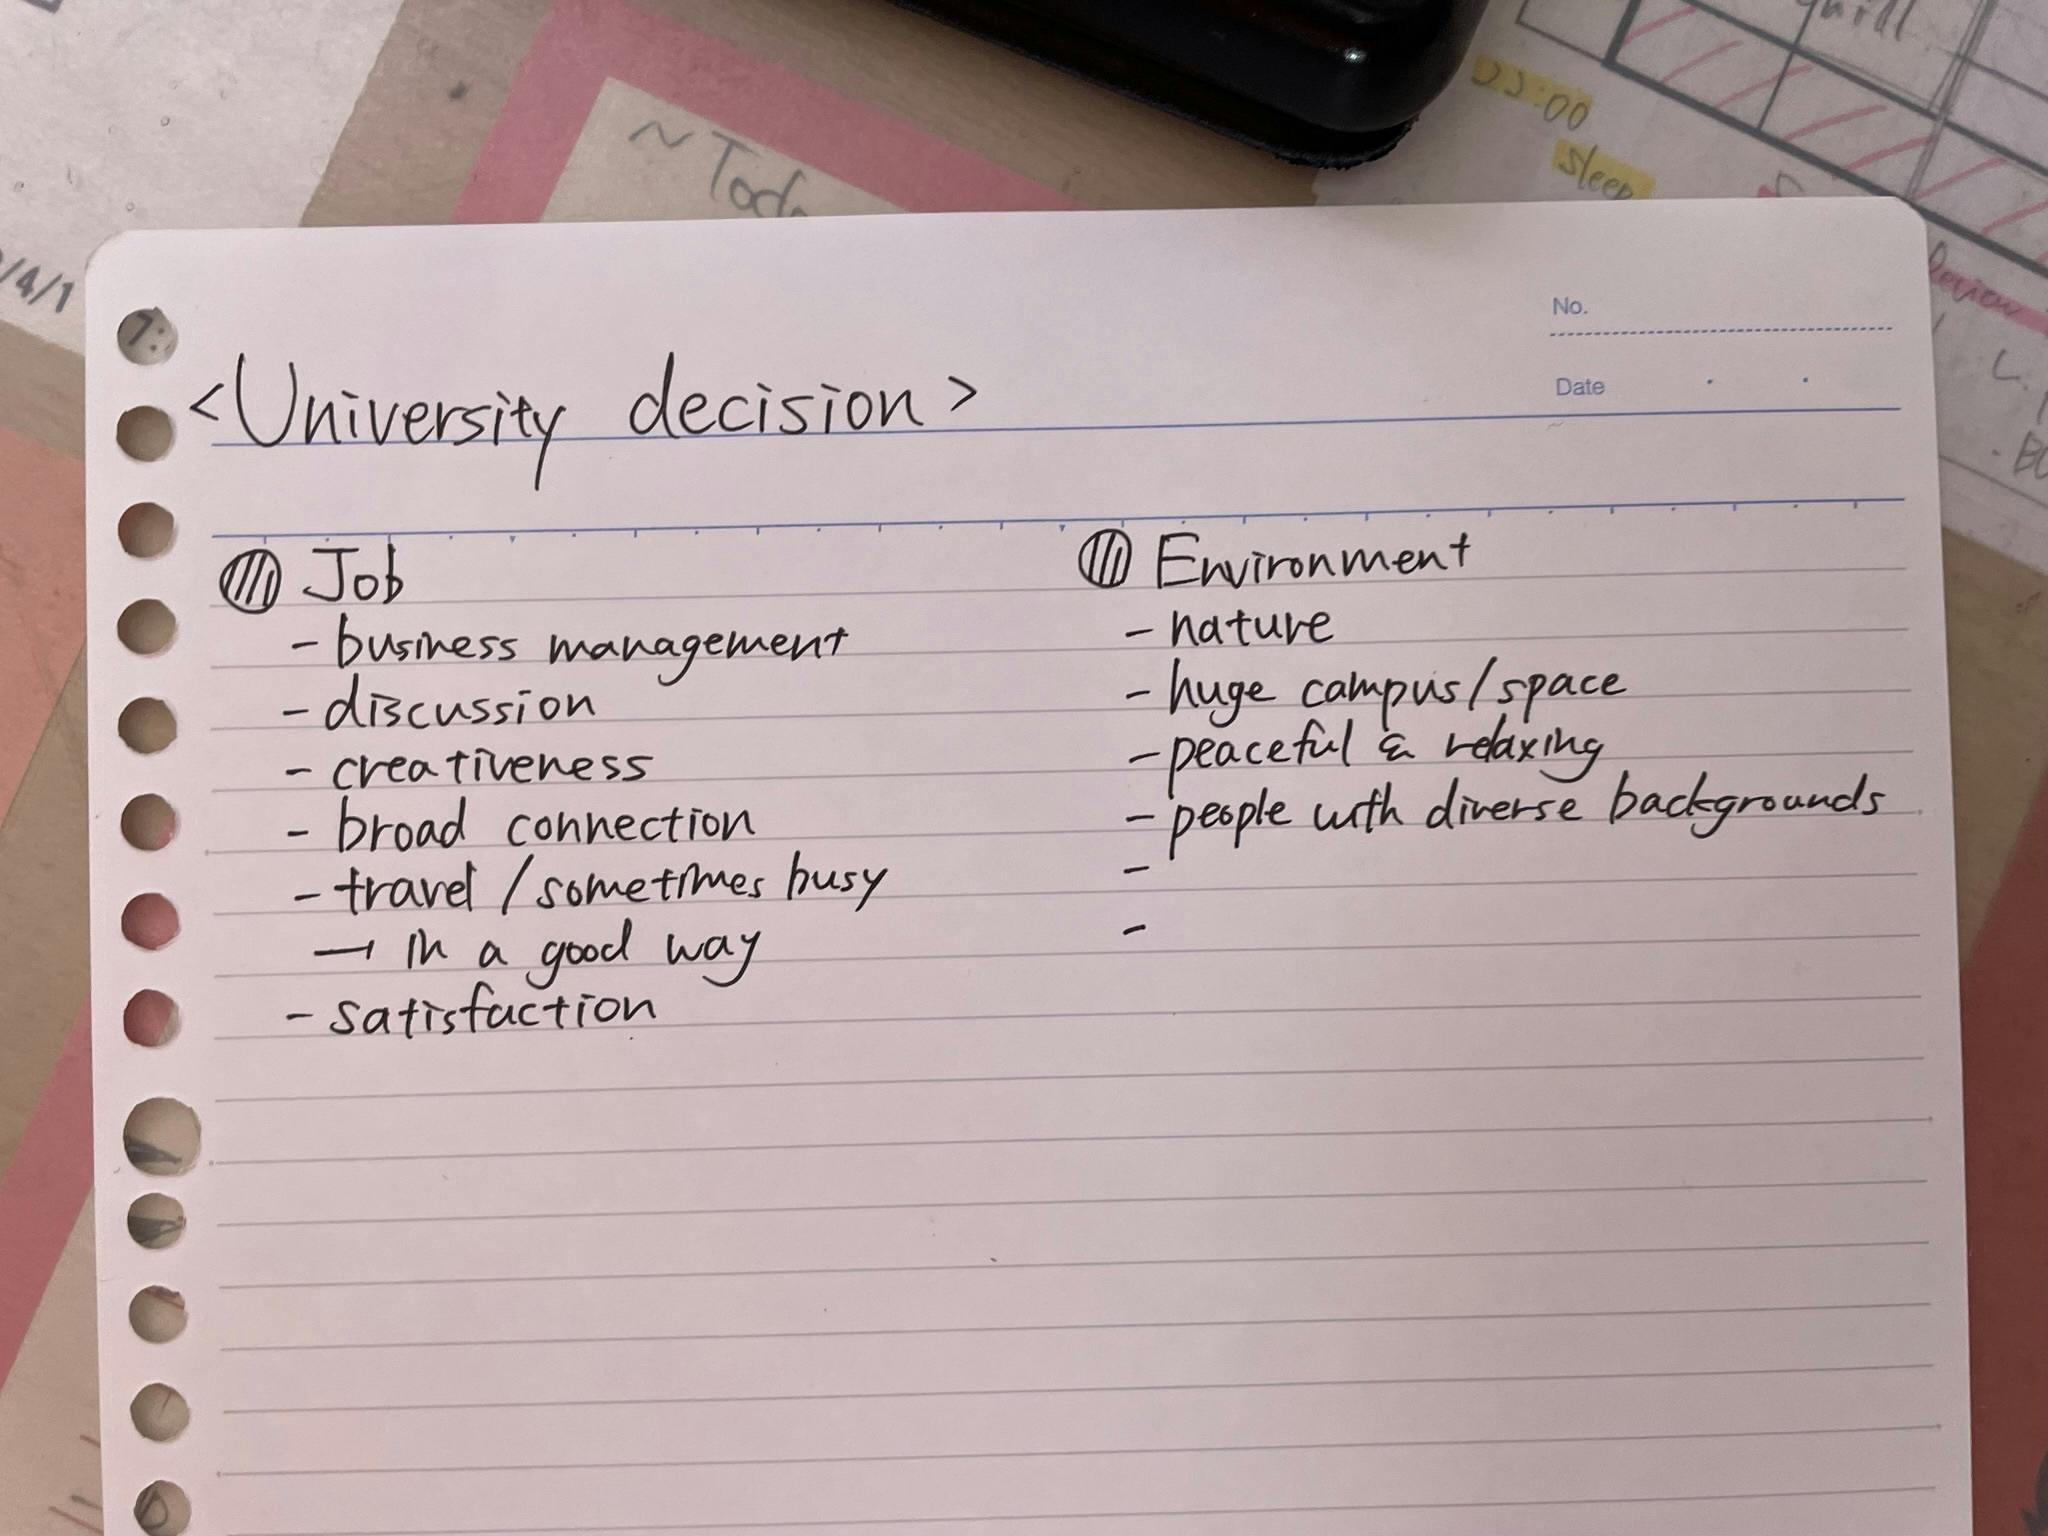 22:00
sleep
~Tod
/4/1
7:
No.
Date
Review
<University decision>
Job
- business management
- discussion
- creativeness
- broad connection
- travel / sometimes busy
→ in a good way
- satisfaction
Environment
- nature
- huge campus/space
- peaceful & relaxing
- people with diverse backgrounds
-
-